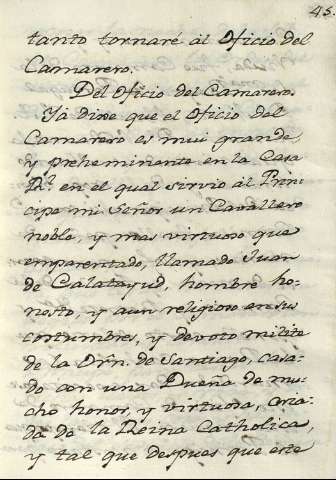 45.
tanto tornaré ál Oficio del
Camarero.
Del Oficio del Camarero.
Já dixe que el Oficio del
Camarero es mui grande,
y preheminente en la Casa
Rl. en el qual sirvio ál Prin-
cipe mi Señor un Cavallero
noble, y mas virtuoso que
emparentado, llamado Juan
de Calatayud, hombre ho-
nesto, y aun religioso en sus
costumbres, y devoto milite
de la Orn. de Santiago, casa-
do con una Dueña de mu-
cho honor, y virtuosa, cria-
da de la Reina Catholica,
y tal que despues que este